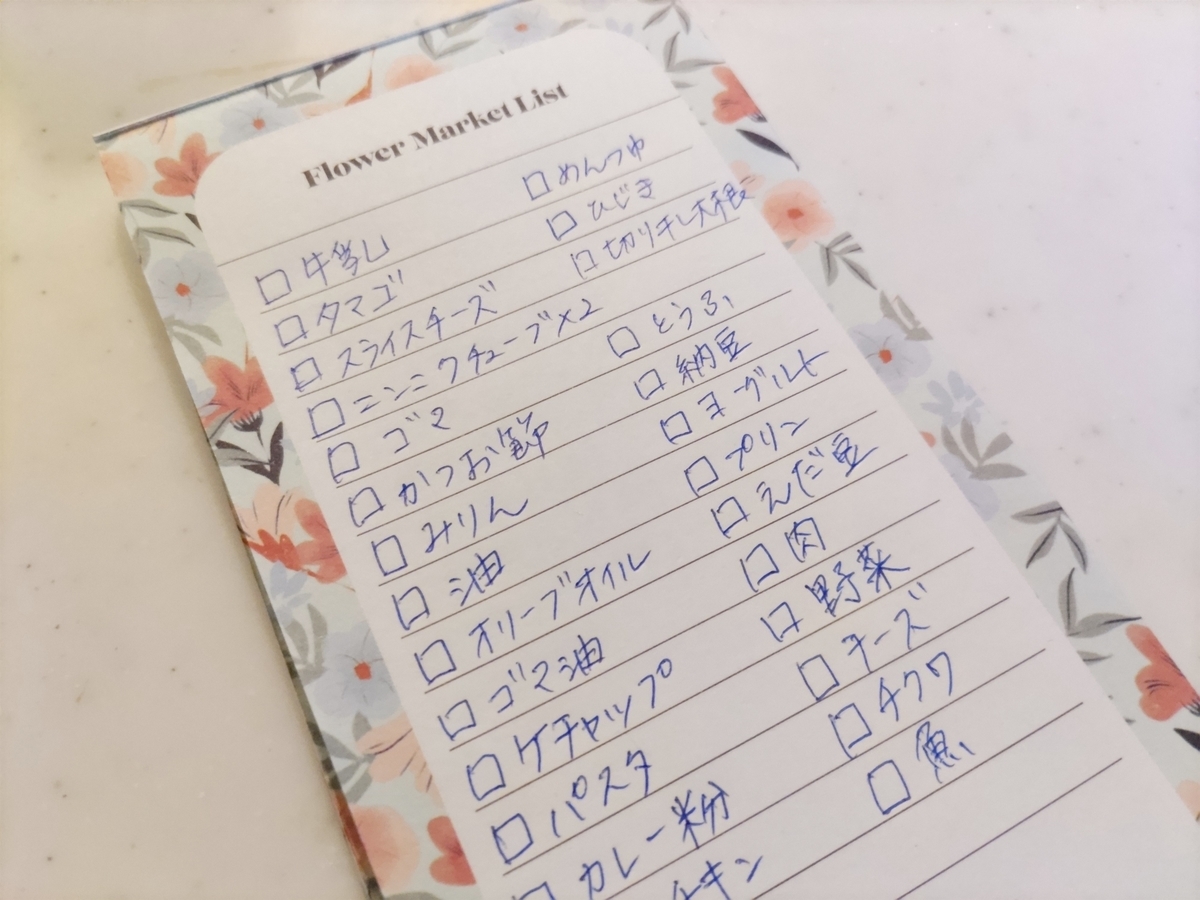 Flower Market List
□ 牛乳
□ タマゴ
□ スライスチーズ
□ ニンニクチューブ×2
□ ゴマ
□ かつお節
□ みりん
□ 油
□ オリーブオイル
□ ゴマ油
□ ケチャップ
□ パスタ
□ カレー粉
チキン
□ めんつゆ
□ ひじき
□ 切り干し大根
□ とうふ
□ 納豆
□ ヨーグルト
□ プリン
□ えだ豆
□ 肉
□ 野菜
□ チーズ
□ チクワ
□ 魚